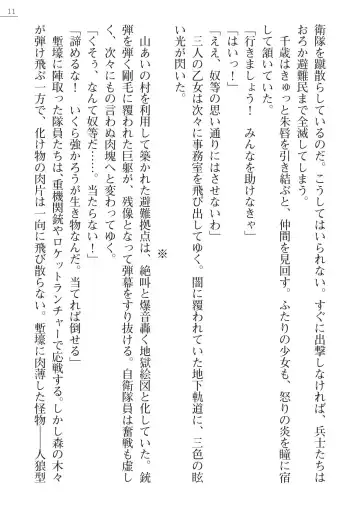 11
衛隊を蹴散らしているのだ。こうしてはいられない。すぐに出撃しなければ、兵士たちは
おろか避難民まで全滅してしまう。
千歳はきゅっと朱唇を引き結ぶと、仲間を見回す。ふたりの少女も、怒りの炎を瞳に宿
して頷いていた。
「行きましょう！　みんなを助けなきゃ」
「はいっ！」
「ええ、奴等の思い通りにはさせないわ」
三人の乙女は次々に事務室を飛び出してゆく。闇に覆われていた地下軌道に、三色の眩
い光が閃いた。
※
山あいの村を利用して築かれた避難拠点は、絶叫と爆音轟く地獄絵図と化していた。銃
弾を弾く剛毛に覆われた巨躯が、残像となって弾幕をすり抜ける。自衛隊員は奮戦も虚し
く、次々にもの言わぬ肉塊へと変わってゆく。
「くそぅ、なんて奴等だ……。当たらない！」
「諦めるな！　いくら強かろうが生き物なんだ。当てれば倒せる」
塹壕に陣取った隊員たちは、重機関銃やロケットランチャーで応戦する。しかし森の木々
が弾け飛ぶ一方で、化け物の肉片は一向に飛び散らない。塹壕に肉薄した怪物――人狼型